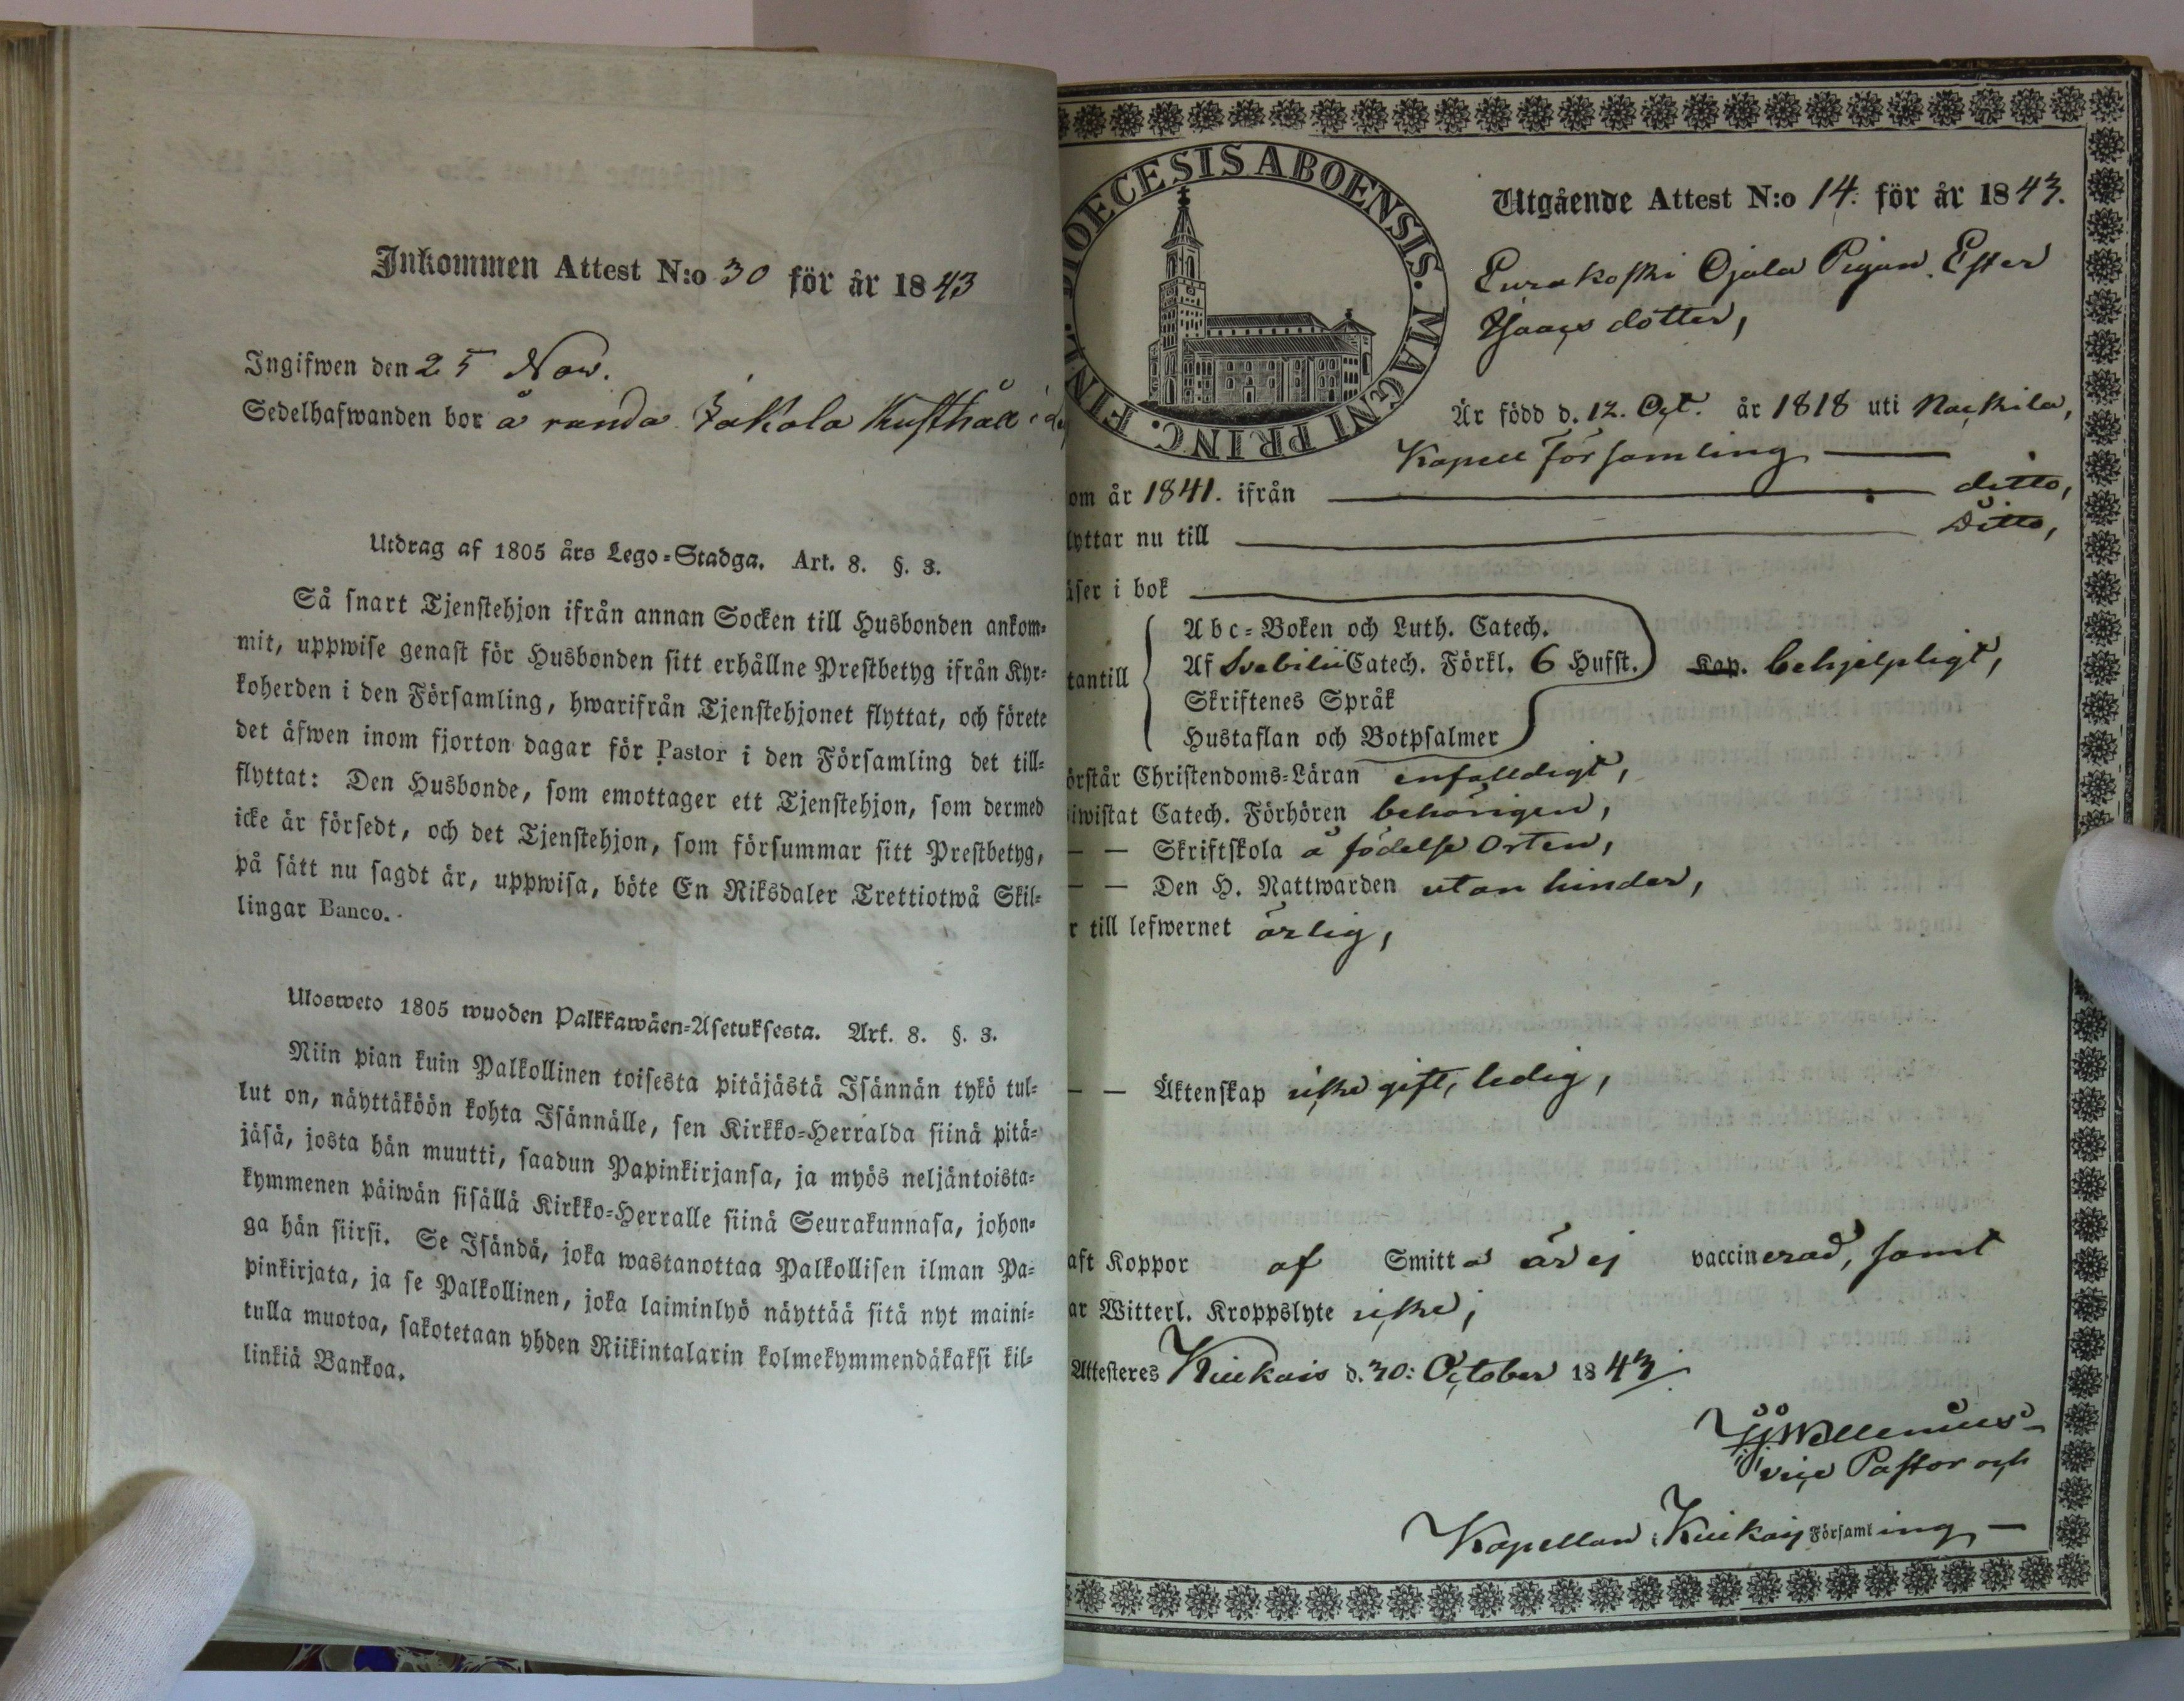 Inkommen Attest N:o 30 för år 1843
Ingifwen den 25 Nov.
Sedelhafwanden bor å randa Jakola Rusthåll i
Utdrag af 1805 års Lego-Stadga. Art. 8. §. 3.
Så snart Tjenstehjon ifrån annan Socken till Husbonden ankom-
mit, uppwise genast för Husbonden sitt erhållne Prestbetyg ifrån Kyr-
koherden i den Församling, hwarifrån Tjenstehjonet flyttat, och förete
det äfwen inom fjorton dagar för Pastor i den Församling det till-
flyttat: Den Husbonde, som emottager ett Tjenstehjon, som dermed
icke är försedt, och det Tjenstehjon, som försummar sitt Prestbetyg,
på sätt nu sagdt är, uppwisa, böte En Riksdaler Trettiotwå Skil-
lingar Banco.
Ulosweto 1805 wuoden Palkkawäen-Asetuksesta. Art. 8. §. 3.
Niin pian kuin Palkollinen toisesta pitäjästä Isännän tykö tul-
lut on, näyttäköön kohta Isännälle, sen Kirkko-Herralda siinä pitä-
jäsä, josta hän muutti, saadun Papinkirjansa, ja myös neljäntoista-
kymmenen päiwän sisällä Kirkko-Herralle siinä Seurakunnasa, johon-
ga hän siirsi. Se Isändä, joka wastanottaa Palkollisen ilman Pa-
pinkirjata, ja se Palkollinen, joka laiminlyö näyttää sitä nyt maini-
tulla muotoa, sakotetaan yhden Riikintalarin kolmekymmendäkaksi kil-
linkiä Bankoa.
DIOECESIS ABOENSIS. MAGNI PRINC. FINL.
Utgående Attest N:o 14. för år 1843.
Eurakoski Ojala Pigan Ester
Isaacs dotter,
Är född d. 12. Oct. år 1818 uti Nackila,
Kapell församling
om år 1841. ifrån ditto,
lyttar nu till Ditto,
äser i bok
Abc-Boken och Luth. Catech.
tantill Af Svebilii Catech. Förkl. 6 Hufst. Kap. behjelpligt,
Skriftenes Språk
Hustaflan och Botpsalmer
örstår Christendoms-Läran enfalldigt,
iwistat Catech. Förhören behörigen,
— — Skriftskola å födelse Orten,
— — Den H. Nattwarden utan hinder,
r till lefwernet ärlig,
— — Äktenskap icke gift, ledig,
aft Koppor af Smitta är ej vaccinerad, samt
ar Witterl. Kroppslyte icke;
Attesteres Kiukais d. 30: October 1843
Wellenius
vice Pastor och
Kapellan i Kiukais Församling